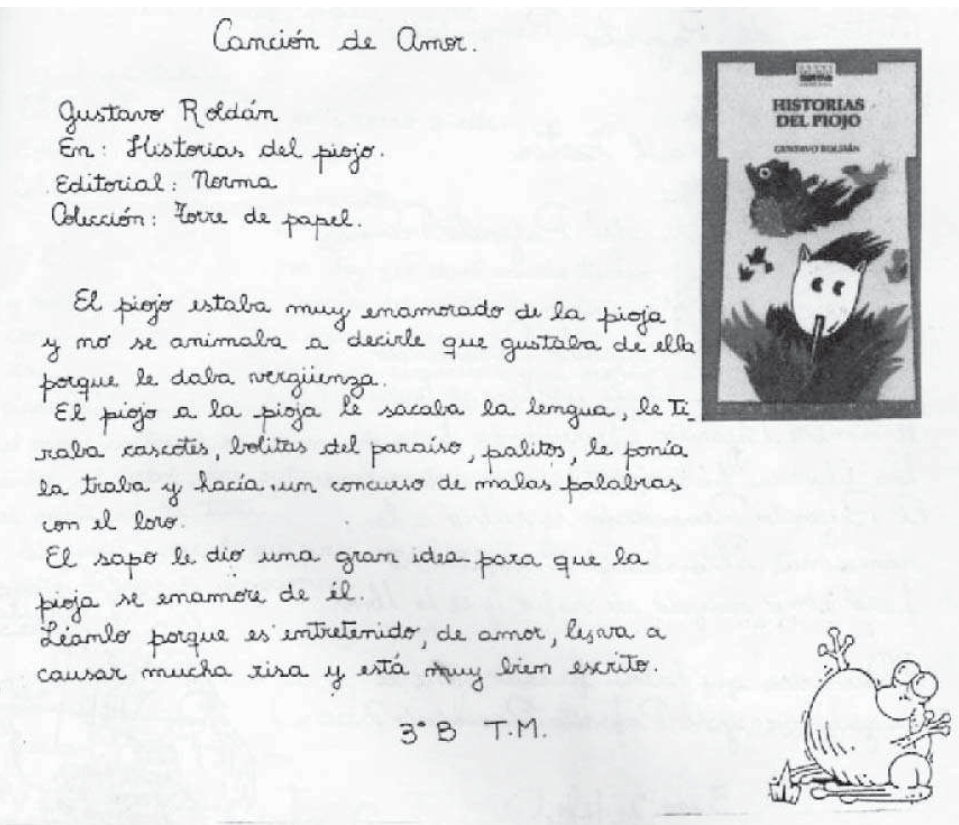 Canción de Amor.
Gustavo Roldán
En: Historias del piojo.
Editorial: Norma
Colección: Torre de papel.
HISTORIAS
DEL PIOJO
GUSTAVO ROLDÁN
El piojo estaba muy enamorado de la pioja
y no se animaba a decirle que gustaba de ella
porque le daba vergüenza.
El piojo a la pioja le sacaba la lengua, le ti_
raba cascotes, bolitas del paraíso, palitos, le ponía
la traba y hacía un concurso de malas palabras
con el loro.
El sapo le dio una gran idea para que la
pioja se enamore de él.
Léanlo porque es entretenido, de amor, les va a
causar mucha risa y está muy bien escrito.
3° B T.M.